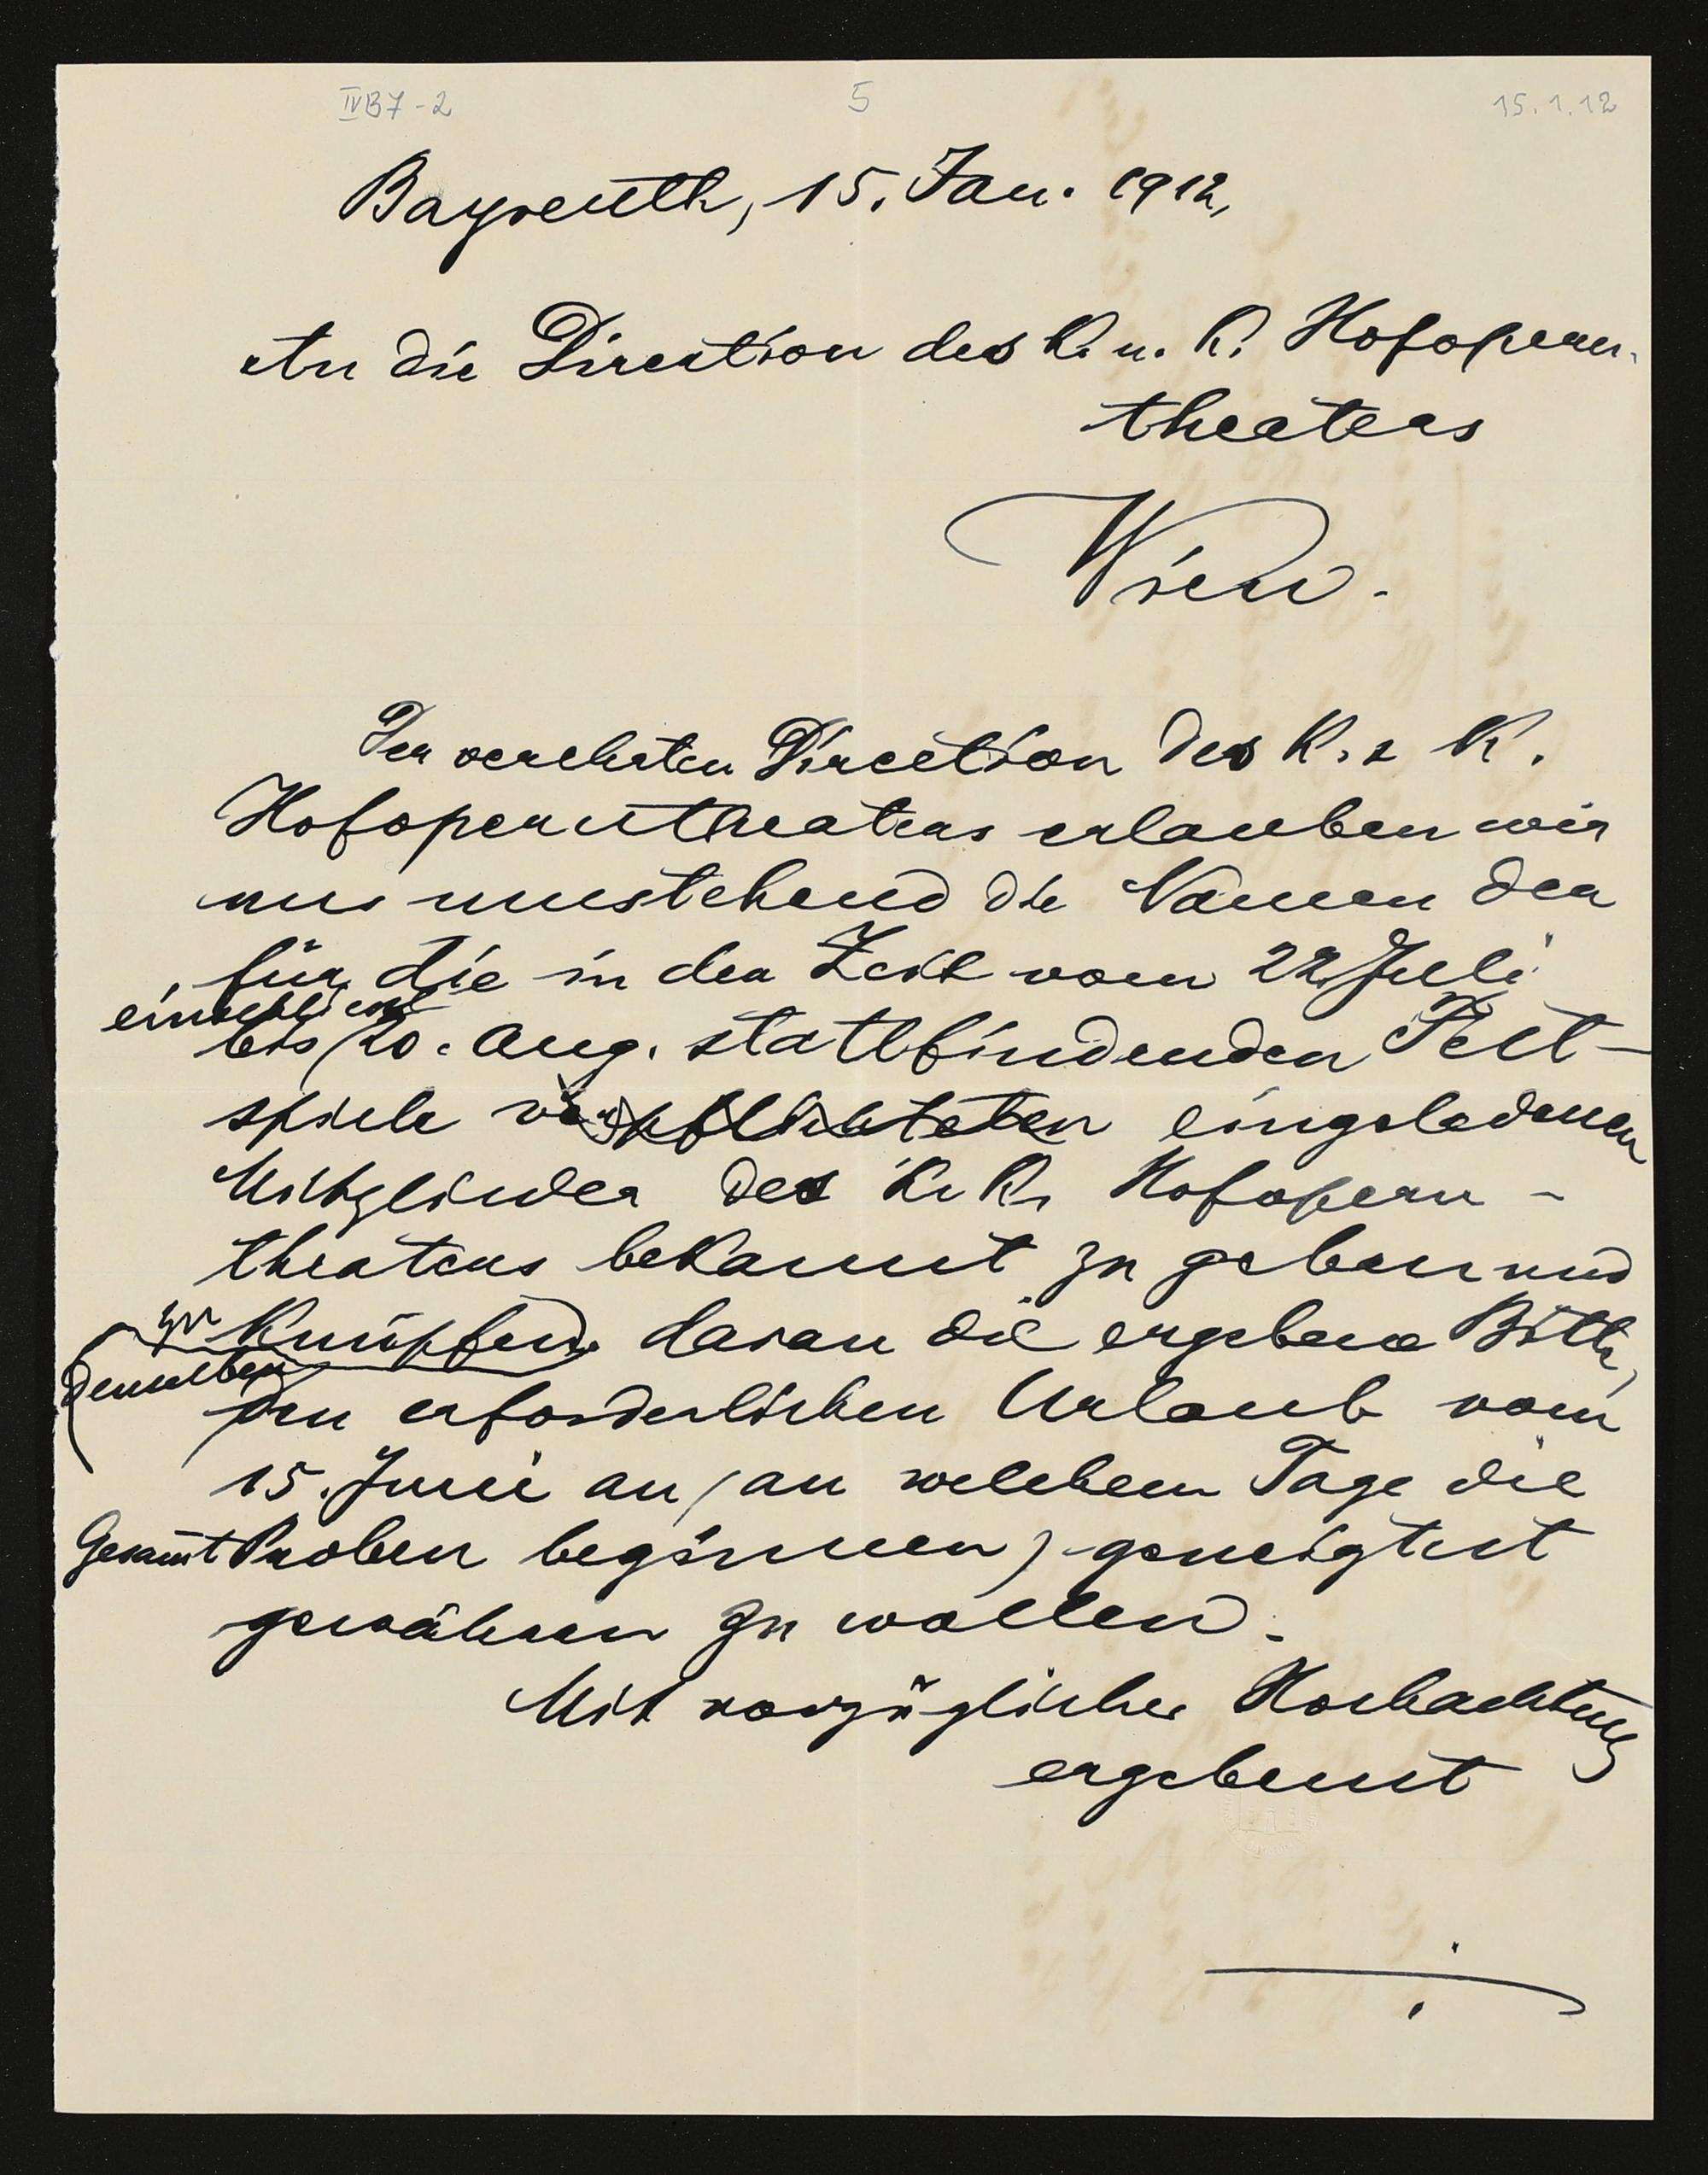 IVB7-2 5 15.1.12
Bayreuth, 15. Jan. 1912,
An die Direction des K. u. K. Hofopern-
theaters
Wien.
Der verehrten Direction des K. & K.
Hofoperntheaters erlauben wir
uns umstehend die Namen der
für die in der Zeit vom 22. Juli
einschließl.
bis 20. Aug. stattfindenden Fest-
spiele verpflichteten eingeladenen
Mitglieder des K. K. Hofopern-
theaters bekannt zu geben und
zu
knüpfen daran die ergebene Bitte,
denselben
den erforderlichen Urlaub vom
15. Juni an (an welchem Tage die
Gesamt Proben beginnen) geneigtest
gewähren zu wollen.
Mit vorzüglicher Hochachtung
ergebenst